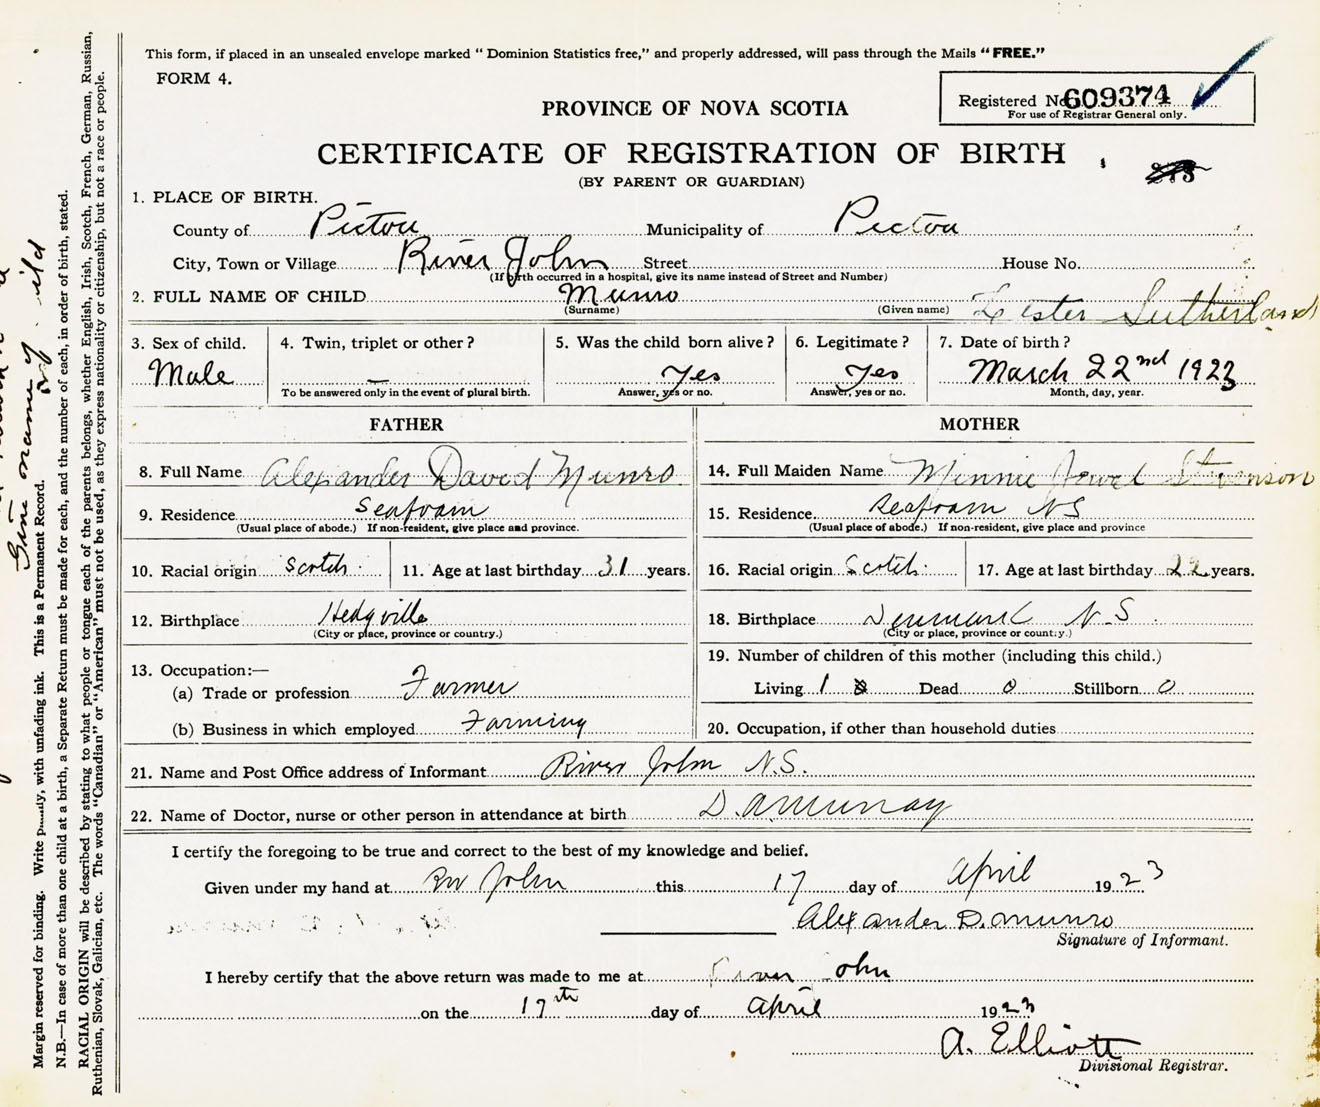 This form, if placed in an unsealed envelope marked “ Dominion Statistics free,” and properly addressed, will pass through the Mails “ FREE.”
FORM 4.
Registered No 609374
For use of Registrar General only.
PROVINCE OF NOVA SCOTIA
CERTIFICATE OF REGISTRATION OF BIRTH
(BY PARENT OR GUARDIAN)
1. PLACE OF BIRTH.
County of Pictou Municipality of Pictou
City, Town or Village River John Street House No.
(If birth occurred in a hospital, give its name instead of Street and Number)
2. FULL NAME OF CHILD Munro Lester Sutherland
(Surname) (Given name)
3. Sex of child. 4. Twin, triplet or other ? 5. Was the child born alive ? 6. Legitimate ? 7. Date of birth ?
Male — Yes Yes March 22nd 1923
To be answered only in the event of plural birth. Answer, yes or no. Answer, yes or no. Month, day, year.
FATHER MOTHER
8. Full Name Alexander David Munro 14. Full Maiden Name Minnie Jewel Stevenson
9. Residence Seafoam 15. Residence Seafoam NS
(Usual place of abode.) If non-resident, give place and province. (Usual place of abode.) If non-resident, give place and province
10. Racial origin Scotch 11. Age at last birthday 31 years. 16. Racial origin Scotch 17. Age at last birthday 22 years.
12. Birthplace Hedgville 18. Birthplace Denmark N.S
(City or place, province or country.) (City or place, province or country.)
13. Occupation:— 19. Number of children of this mother (including this child.)
(a) Trade or profession Farmer Living 1 Dead 0 Stillborn 0
(b) Business in which employed Farming 20. Occupation, if other than household duties
21. Name and Post Office address of Informant River John N.S.
22. Name of Doctor, nurse or other person in attendance at birth D.A. Murray
I certify the foregoing to be true and correct to the best of my knowledge and belief.
Given under my hand at Riv John this 17 day of April 1923
Alexander D. Munro
Signature of Informant.
I hereby certify that the above return was made to me at River John
on the 17th day of April 1923
A. Elliott
Divisional Registrar.
Give name of child
Margin reserved for binding. Write plainly, with unfading ink. This is a Permanent Record.
N.B.—In case of more than one child at a birth, a Separate Return must be made for each, and the number of each, in order of birth, stated.
RACIAL ORIGIN will be described by stating to what people or tongue each of the parents belongs, whether English, Irish, Scotch, French, German, Russian,
Ruthenian, Slovak, Galician, etc. The words “Canadian” or “American” must not be used, as they express nationality or citizenship, but not a race or people.